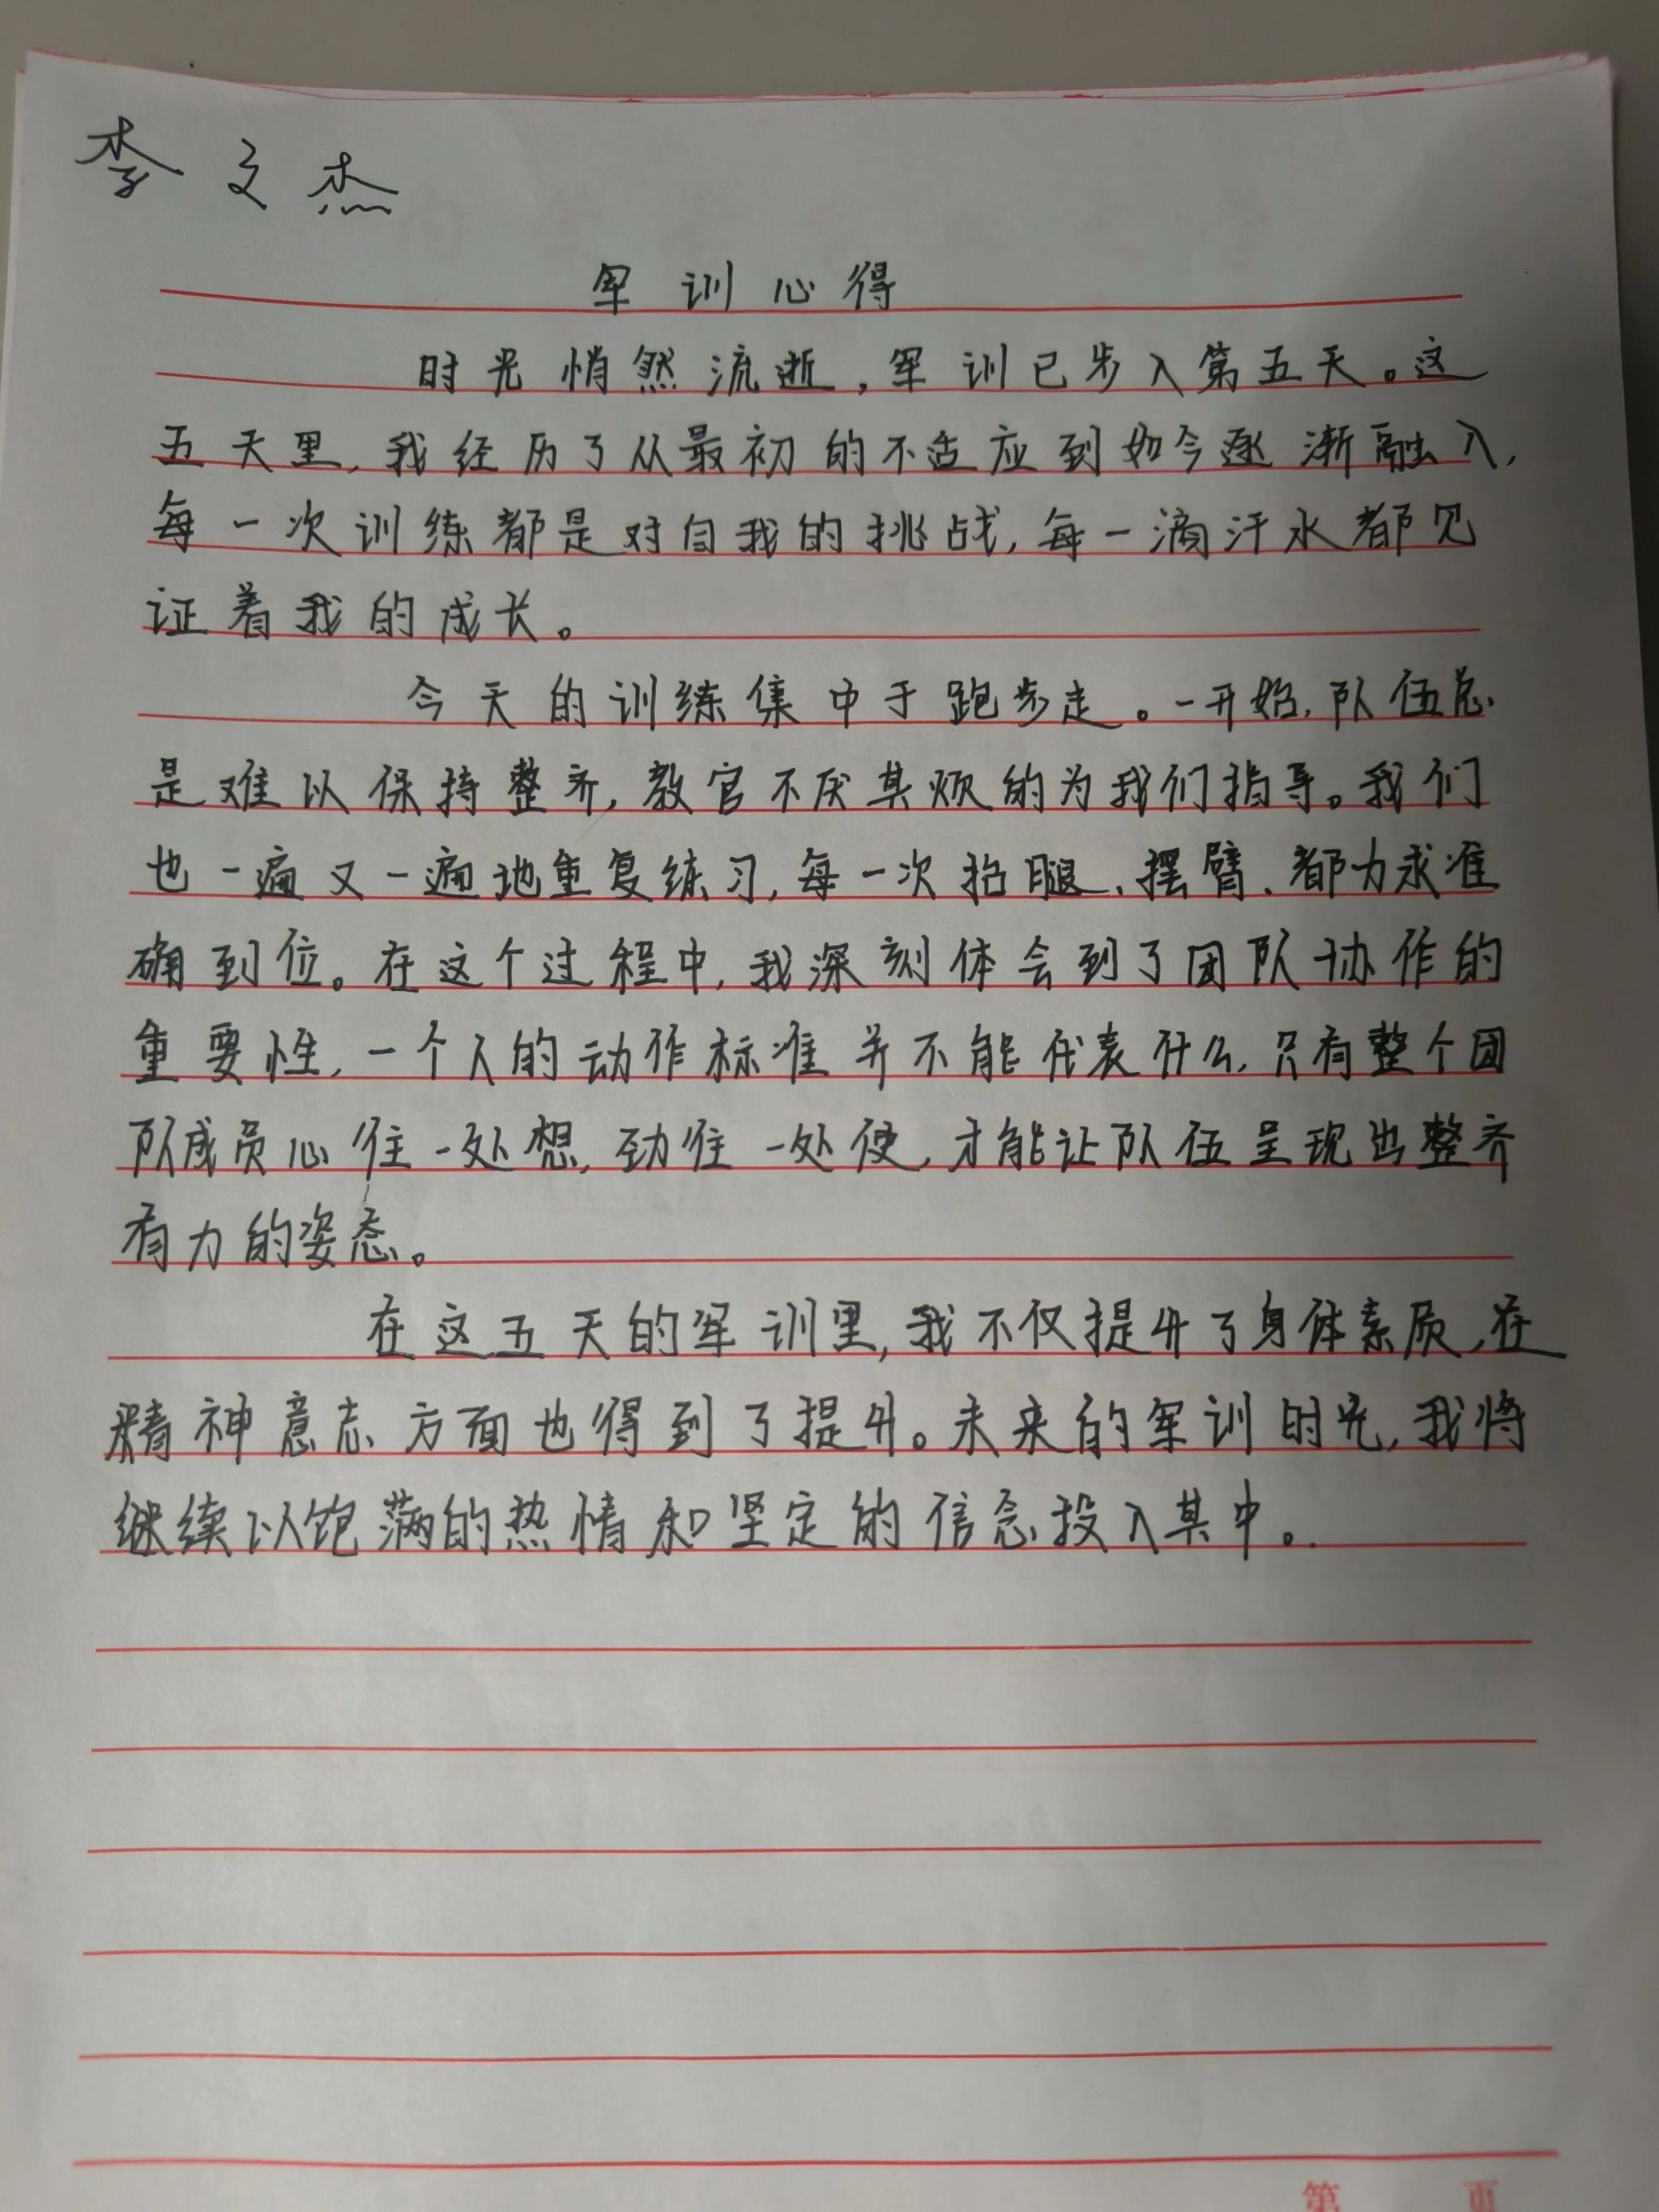 李文杰
军训心得
时光悄然流逝，军训已步入第五天。这
五天里，我经历了从最初的不适应到如今逐渐融入，
每一次训练都是对自我的挑战，每一滴汗水都见
证着我的成长。
今天的训练集中于跑步走。一开始，队伍总
是难以保持整齐，教官不厌其烦的为我们指导。我们
也一遍又一遍地重复练习，每一次抬腿、摆臂、都力求准
确到位。在这个过程中，我深刻体会到了团队协作的
重要性，一个人的动作标准并不能代表什么，只有整个团
队成员心往一处想，劲往一处使，才能让队伍呈现出整齐
有力的姿态。
在这五天的军训里，我不仅提升了身体素质，在
精神意志方面也得到了提升。未来的军训时光，我将
继续以饱满的热情和坚定的信念投入其中。
第 页